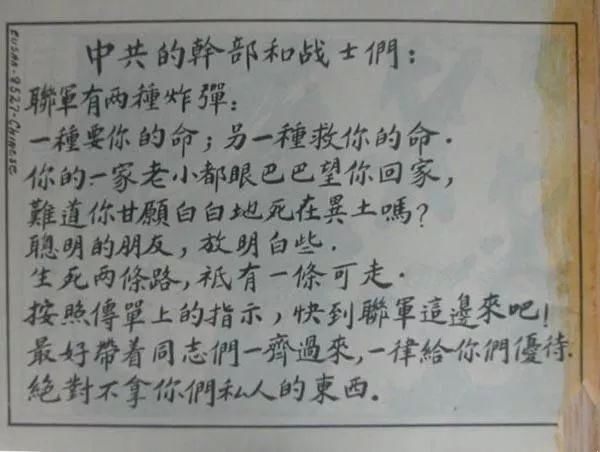 EUSAK-8527-Chinese
中共的幹部和战士們：
聯軍有两種炸彈：
一種要你的命；另一種救你的命．
你的一家老小都眼巴巴望你回家，
難道你甘願白白地死在異土嗎？
聰明的朋友，放明白些．
生死两條路，祇有一條可走．
按照傳單上的指示，快到聯軍這邊來吧！
最好帶着同志們一齊過來，一律給你們優待．
絕對不拿你們私人的東西．